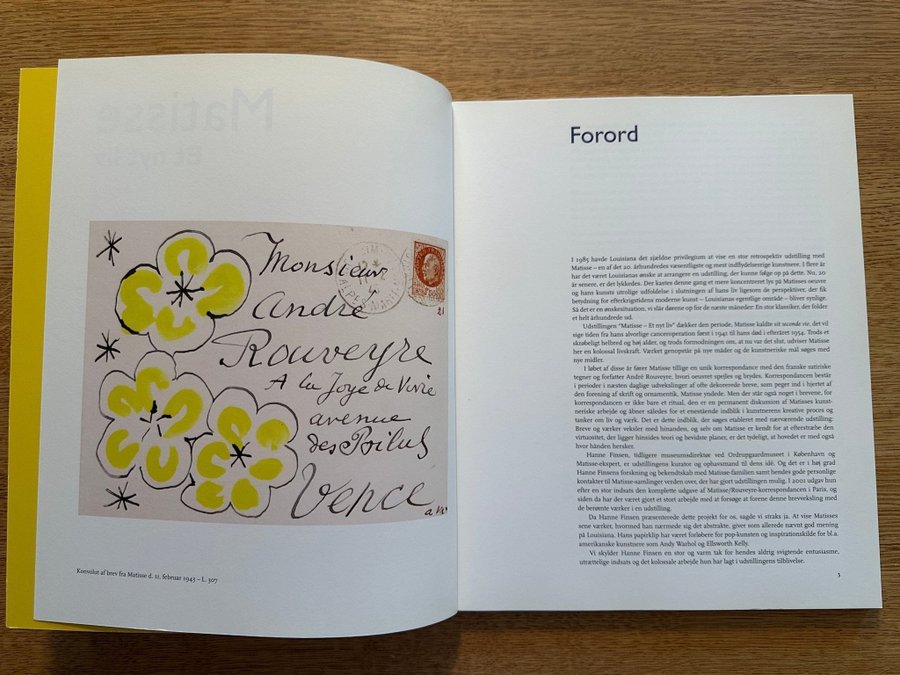 Matisse
Et nyt liv
Monsieur
André
Rouveyre
A la Joye de Vivre
avenue
des Poilus
Vence
Konvolut af brev fra Matisse d. 11. februar 1943 – L. 307
Forord
I 1985 havde Louisiana det sjældne privilegium at vise en stor retrospektiv udstilling med
Matisse – en af det 20. århundredes væsentligste og mest indflydelsesrige kunstnere. I flere år
har det været Louisianas ønske at arrangere en udstilling, der kunne følge op på dette. Nu, 20
år senere, er det lykkedes. Der kastes denne gang et mere koncentreret lys på Matisses oeuvre
og hans kunsts utrolige udfoldelse i slutningen af hans liv ligesom de perspektiver, der fik
betydning for efterkrigstidens moderne kunst – Louisianas egentlige område – bliver synlige.
Så det er en ønskesituation, vi slår dørene op for de næste måneder: En stor klassiker, der folder
et helt århundrede ud.
Udstillingen "Matisse – Et nyt liv" dækker den periode, Matisse kaldte sit seconde vie, det vil
sige tiden fra hans alvorlige canceroperation først i 1941 til hans død i efteråret 1954. Trods et
skrøbeligt helbred og høj alder, og trods formodningen om, at nu var det slut, udviser Matisse
her en kolossal livskraft. Værket genopstår på nye måder og de kunstneriske mål søges med
nye midler.
I løbet af disse år fører Matisse tillige en unik korrespondance med den franske satiriske
tegner og forfatter André Rouveyre, hvori oeuvret spejles og brydes. Korrespondancen består
i perioder i næsten daglige udvekslinger af ofte dekorerede breve, som peger ind i hjertet af
den forening af skrift og ornamentik, Matisse yndede. Men der står også noget i brevene, for
korrespondancen er ikke bare et ritual, den er en permanent diskussion af Matisses kunst-
neriske arbejde og åbner således for et enestående indblik i kunstnerens kreative proces og
tanker om liv og værk. Det er dette indblik, der søges etableret med nærværende udstilling:
Breve og værker veksler med hinanden, og selv om Matisse er kendt for at efterstræbe den
virtuositet, der ligger hinsides teori og bevidste planer, er det tydeligt, at hovedet er med også
hvor hånden hersker.
Hanne Finsen, tidligere museumsdirektør ved Ordrupgaardmuseet i København og
Matisse-ekspert, er udstillingens kurator og ophavsmand til dens idé. Og det er i høj grad
Hanne Finsens forskning og bekendtskab med Matisse-familien samt hendes gode personlige
kontakter til Matisse-samlinger verden over, der har gjort udstillingen mulig. I 2001 udgav hun
efter en stor indsats den komplette udgave af Matisse/Rouveyre-korrespondancen i Paris, og
siden da har der været gjort et stort arbejde med at forsøge at forene denne brevveksling med
de berømte værker i en udstilling.
Da Hanne Finsen præsenterede dette projekt for os, sagde vi straks ja. At vise Matisses
sene værker, hvormed han nærmede sig det abstrakte, giver som allerede nævnt god mening
på Louisiana. Hans papirklip har været forløbere for pop-kunsten og inspirationskilde for bl.a.
amerikanske kunstnere som Andy Warhol og Ellsworth Kelly.
Vi skylder Hanne Finsen en stor og varm tak for hendes aldrig svigtende entusiasme,
utrættelige indsats og det kolossale arbejde hun har lagt i udstillingens tilblivelse.
3